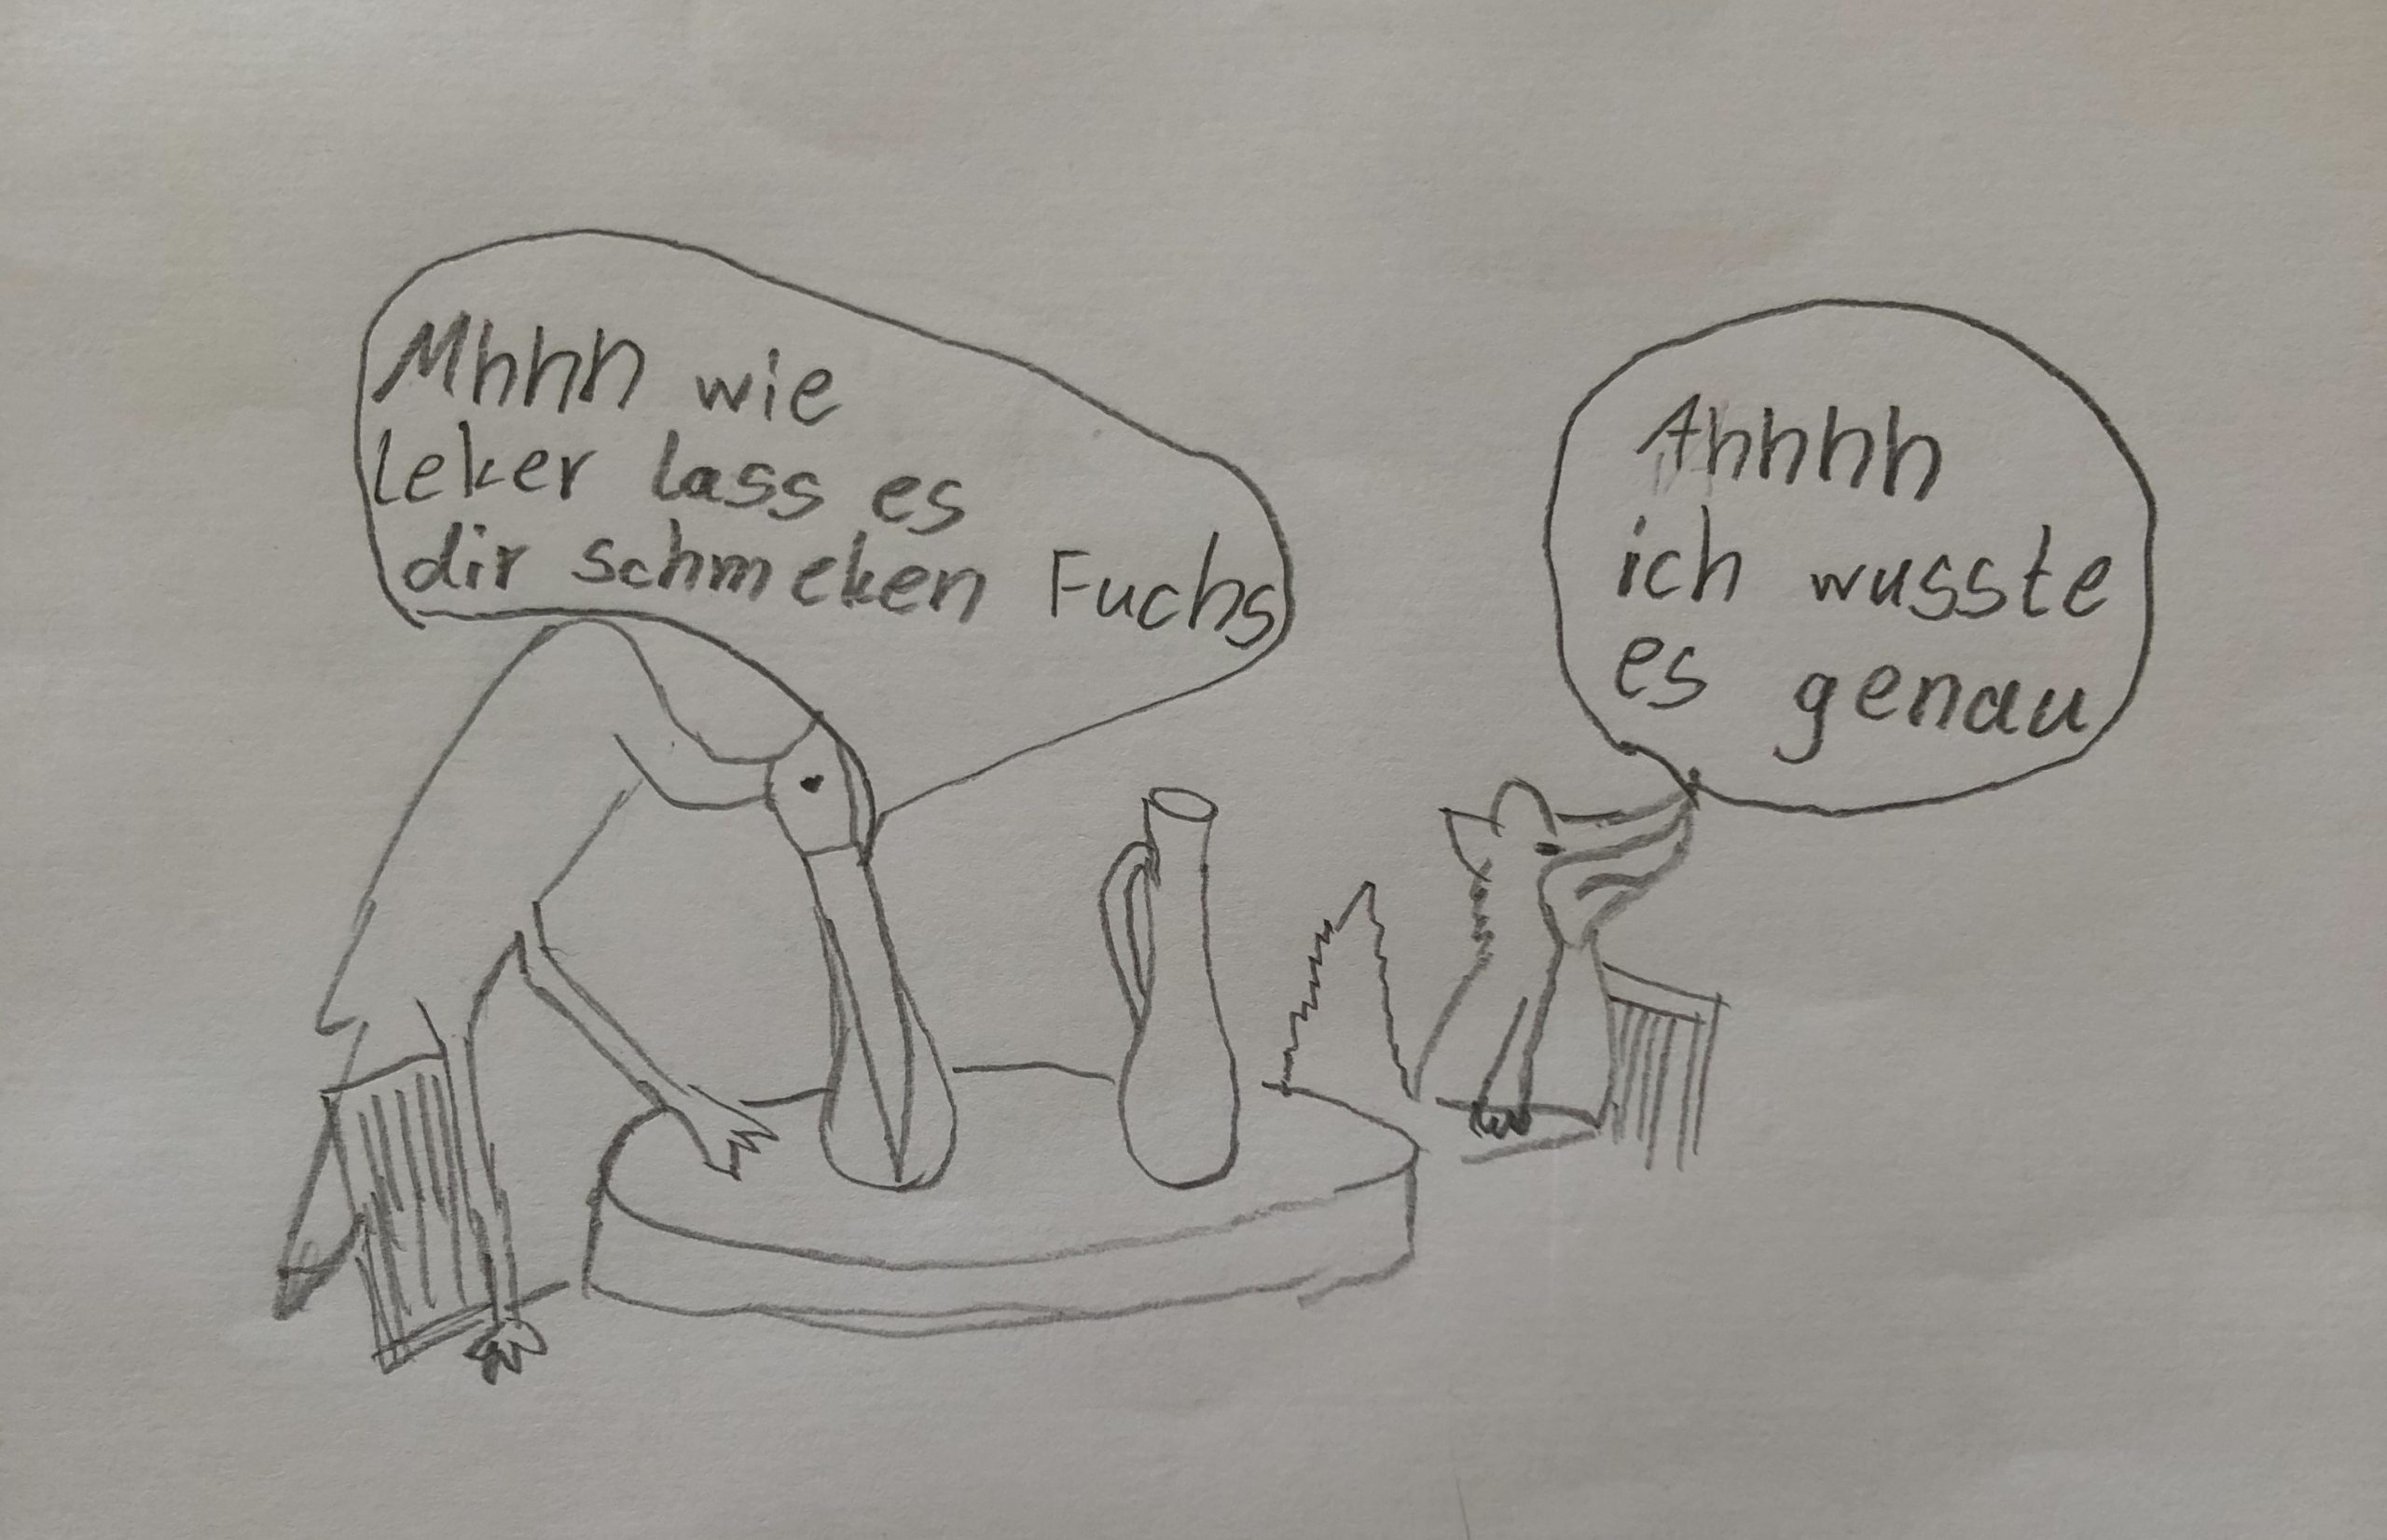 Mhhh wie
leker lass es
dir schmeken Fuchs
Ahhhh
ich wusste
es genau